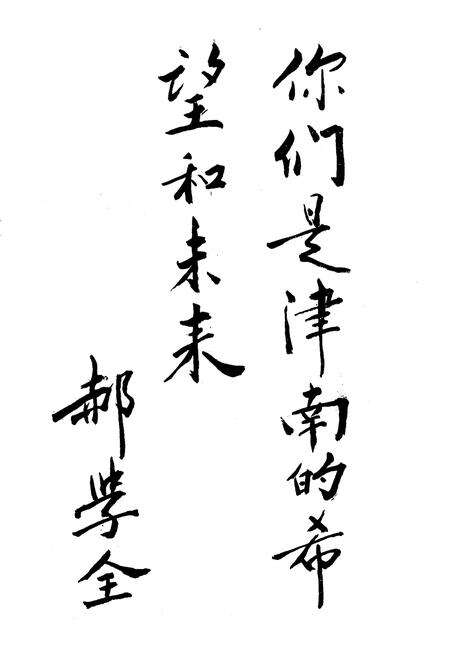 你们是津南的希
望和未来
郝学全